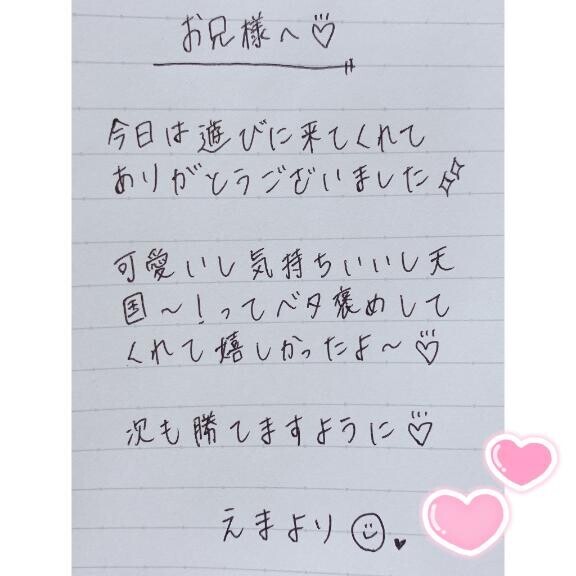 お兄様へ♡
今日は遊びに来てくれて
ありがとうございました✨
可愛いし気持ちいいし天
国〜！ってベタ褒めして
くれて嬉しかったよ〜♡
次も勝てますように♡
えまより☺♥